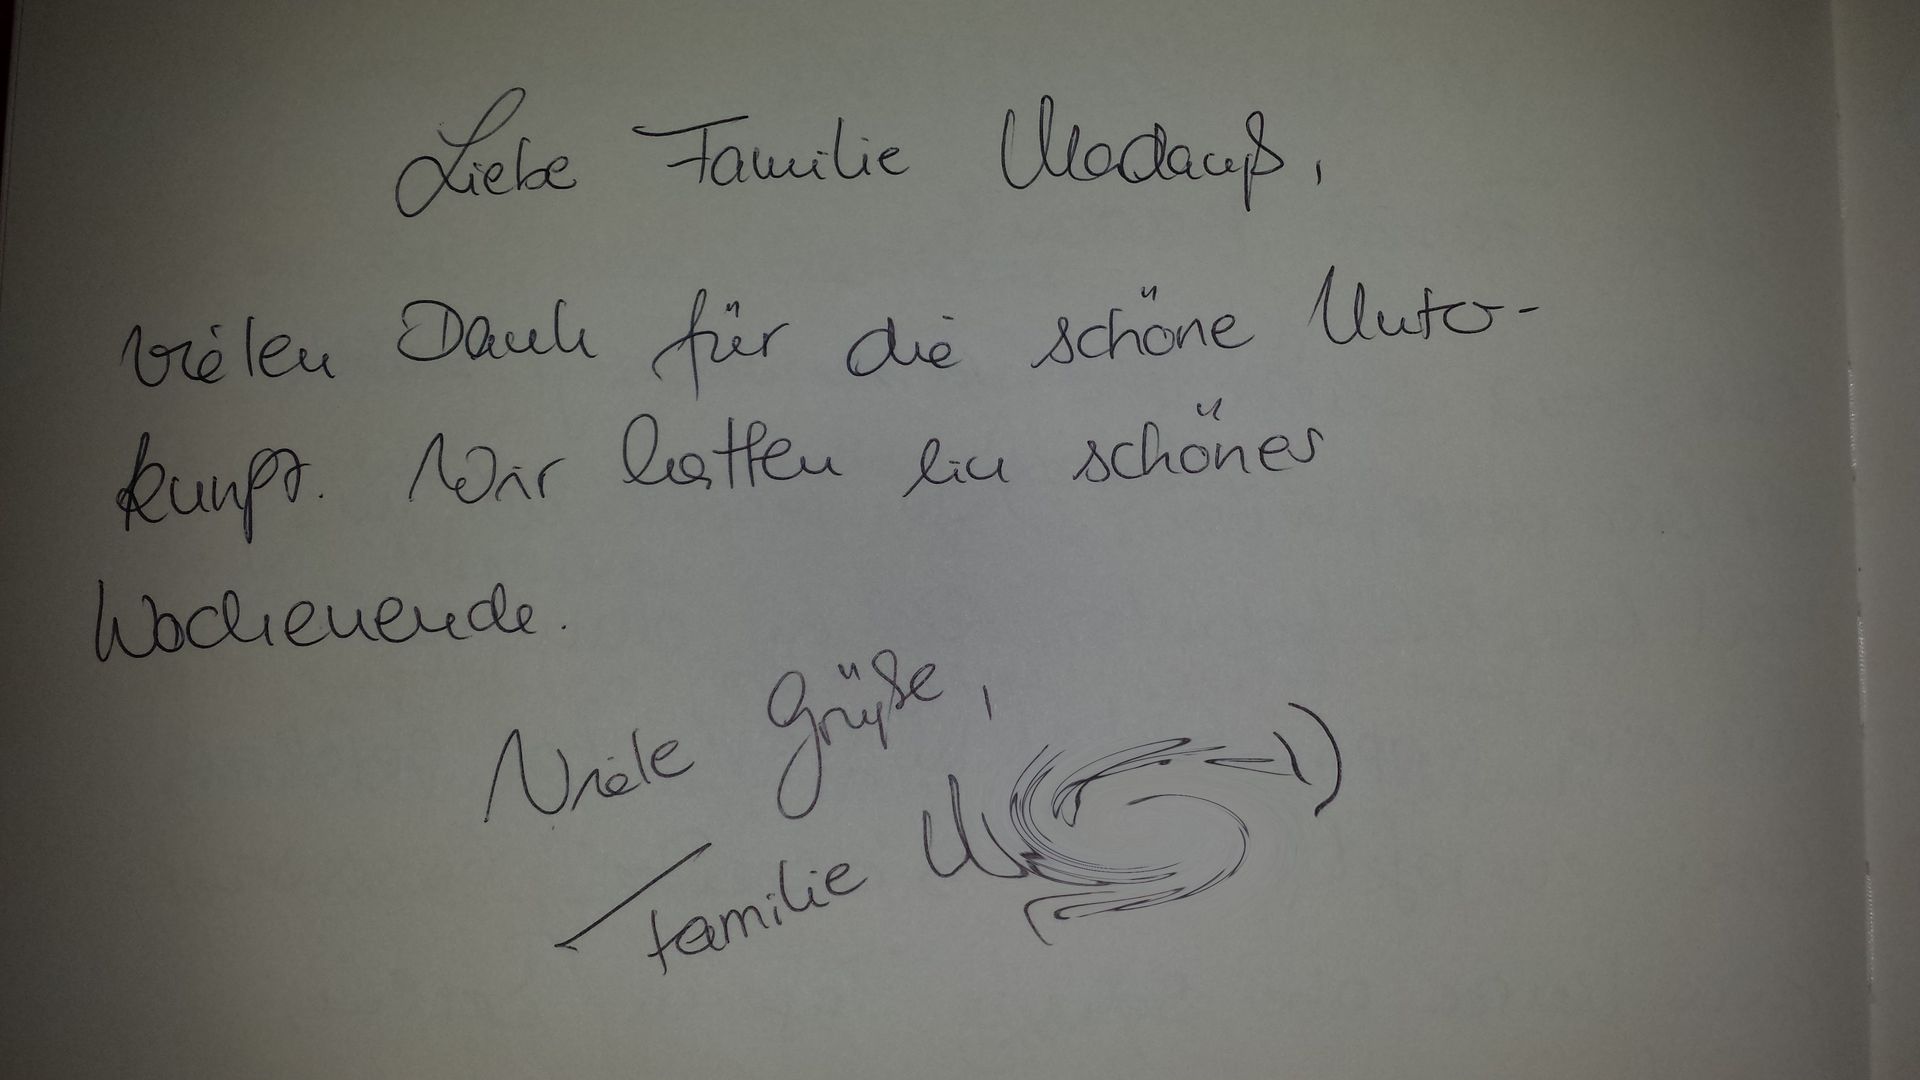 Liebe Familie Madauß,
vielen Dank für die schöne Unter-
kunft. Wir hatten ein schönes
Wochenende.
Viele Grüße,
Familie